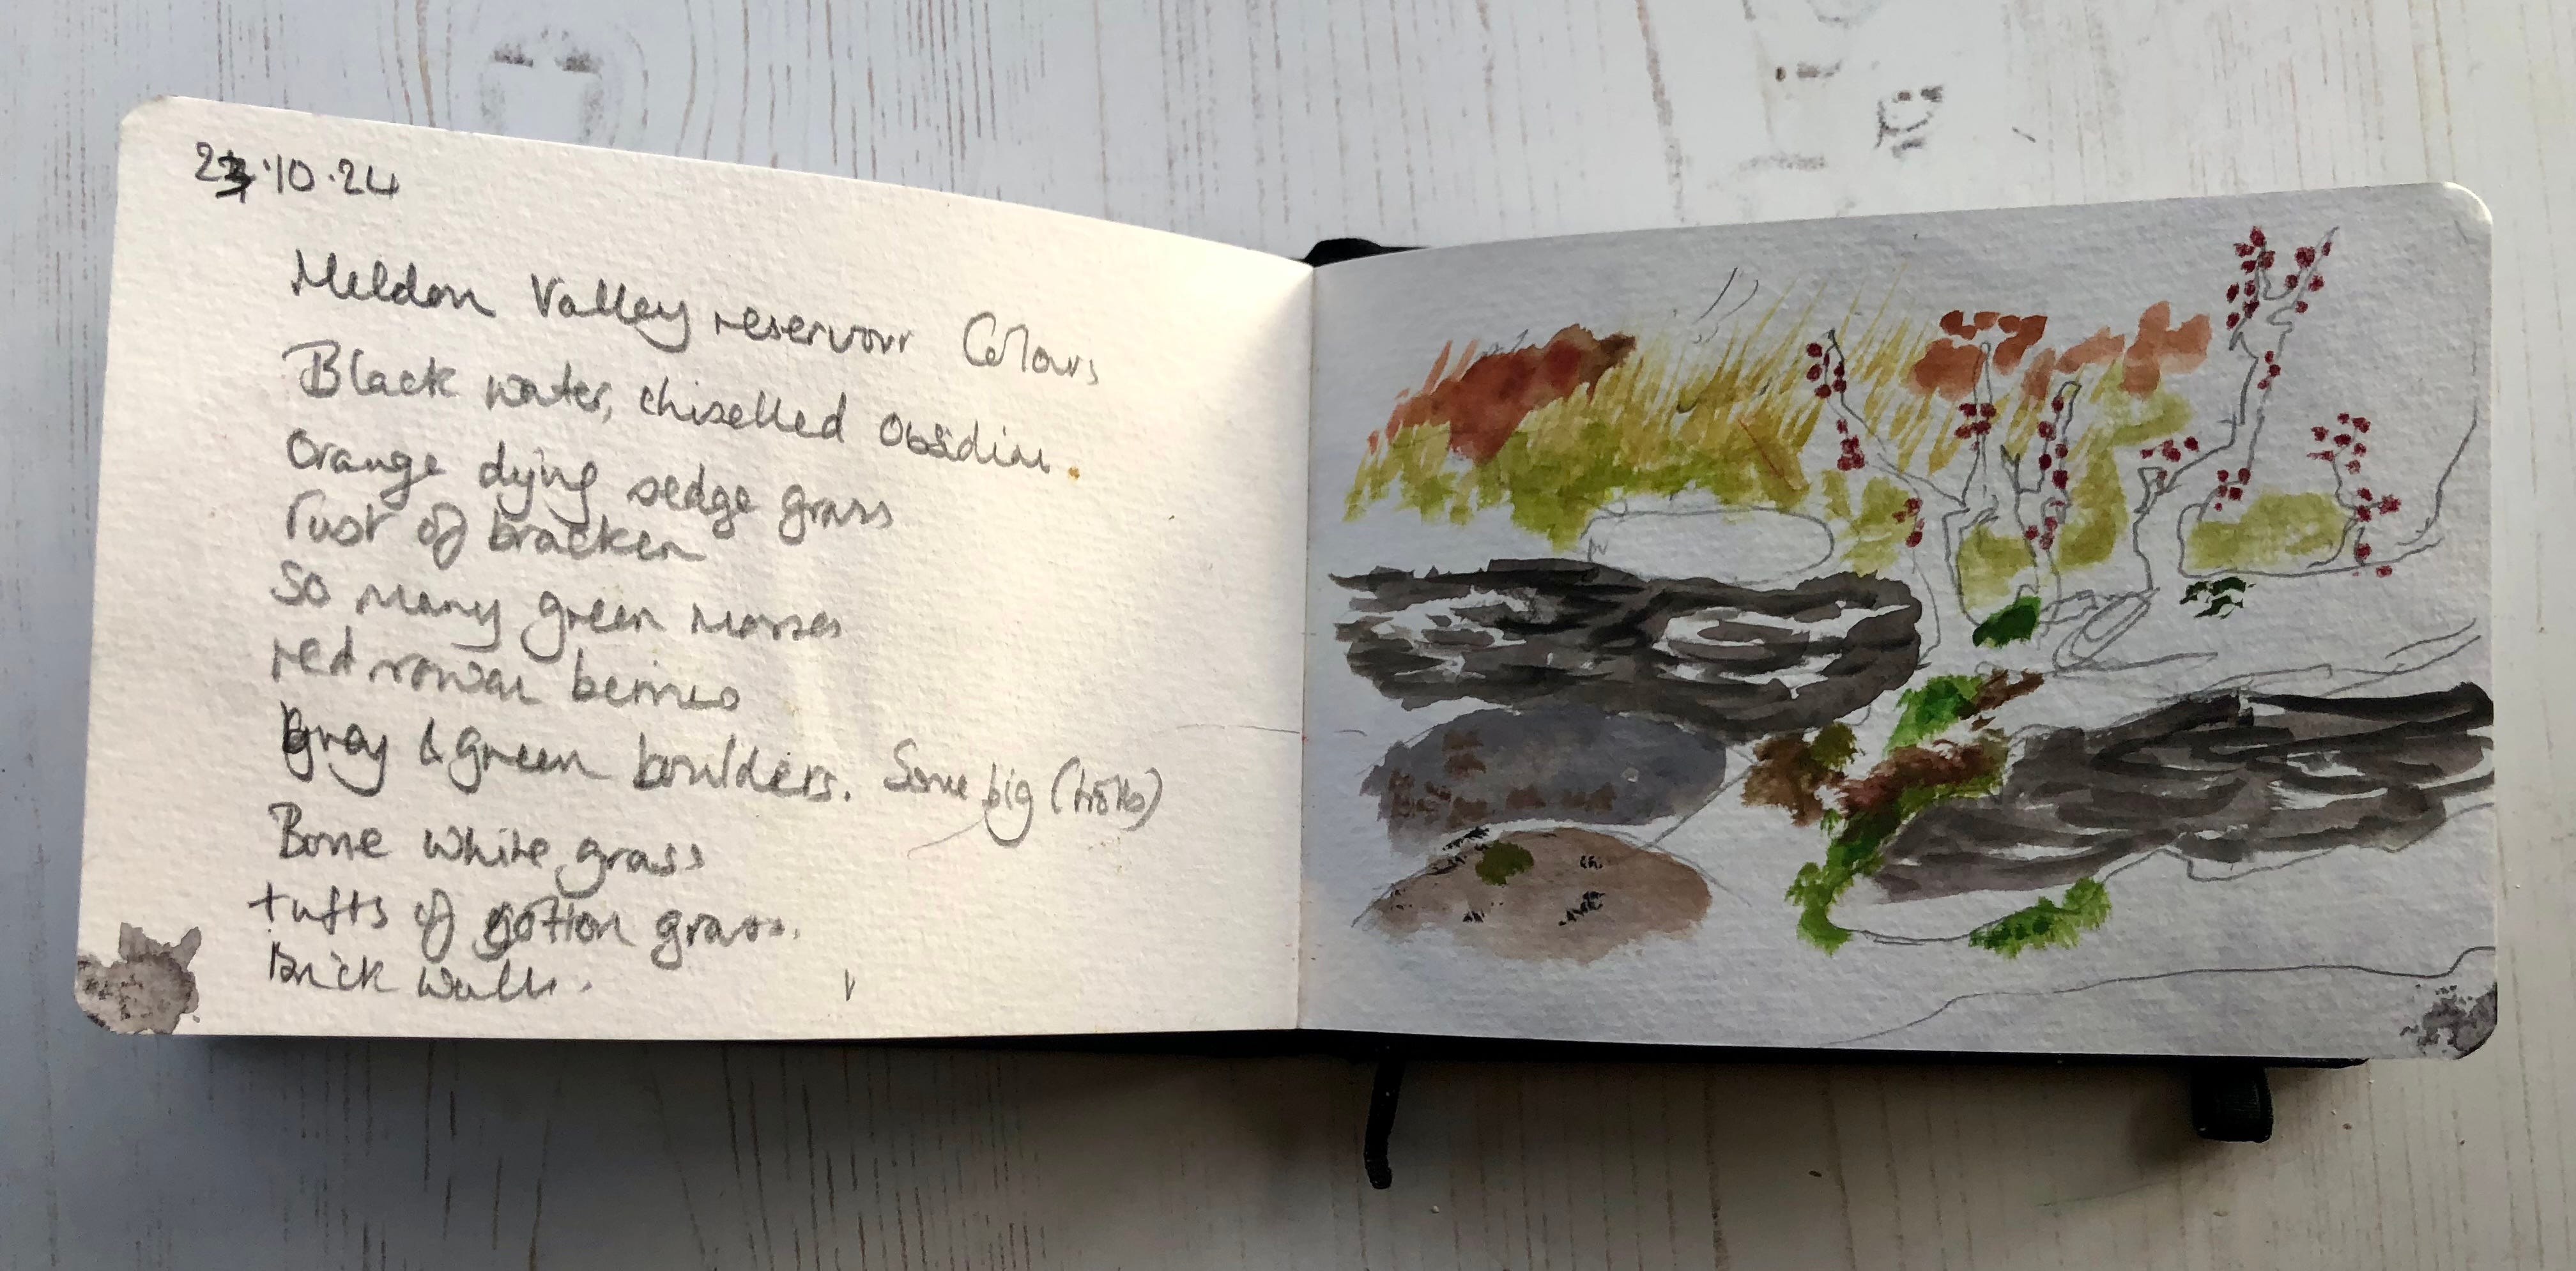 23.10.24
Meldon Valley reservoir Colours
Black water, chiselled Obsidian.
Orange dying sedge grass
rust of bracken
So many green mosses
red rowan berries
gray & green boulders. Some big
Bone white grass
tufts of cotton grass.
brick walls.